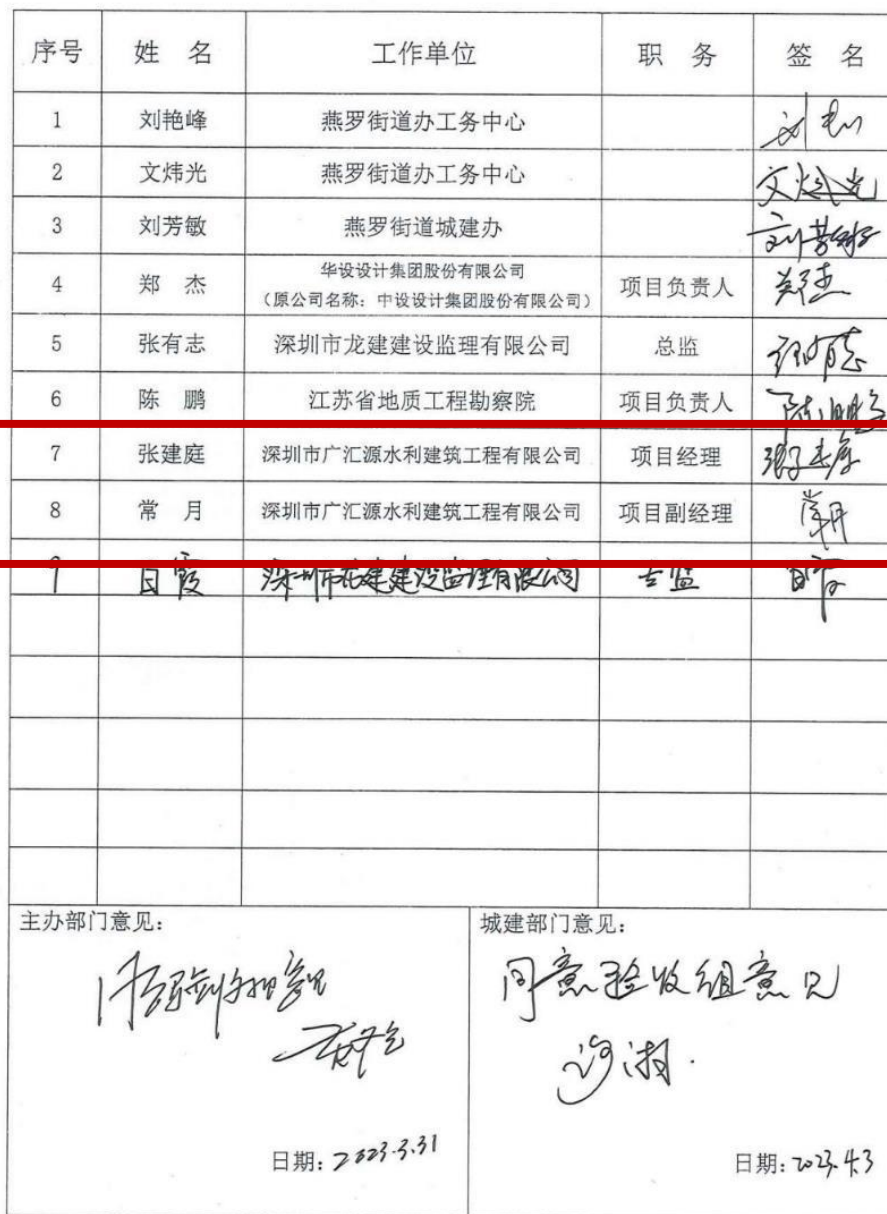 序号 姓 名 工作单位 职 务 签 名
1 刘艳峰 燕罗街道办工务中心
2 文炜光 燕罗街道办工务中心 文炜光
3 刘芳敏 燕罗街道城建办 刘芳敏
4 郑 杰 华设设计集团股份有限公司 项目负责人 郑杰
（原公司名称：中设设计集团股份有限公司）
5 张有志 深圳市龙建建设监理有限公司 总监 张有志
6 陈 鹏 江苏省地质工程勘察院 项目负责人 陈鹏
7 张建庭 深圳市广汇源水利建筑工程有限公司 项目经理 张建庭
8 常 月 深圳市广汇源水利建筑工程有限公司 项目副经理 常月
9 白霞 深圳市龙建建设监理有限公司 专监 白霞
主办部门意见： 城建部门意见：
同意验收组意见
日期：2023.3.31 日期：2023.4.3